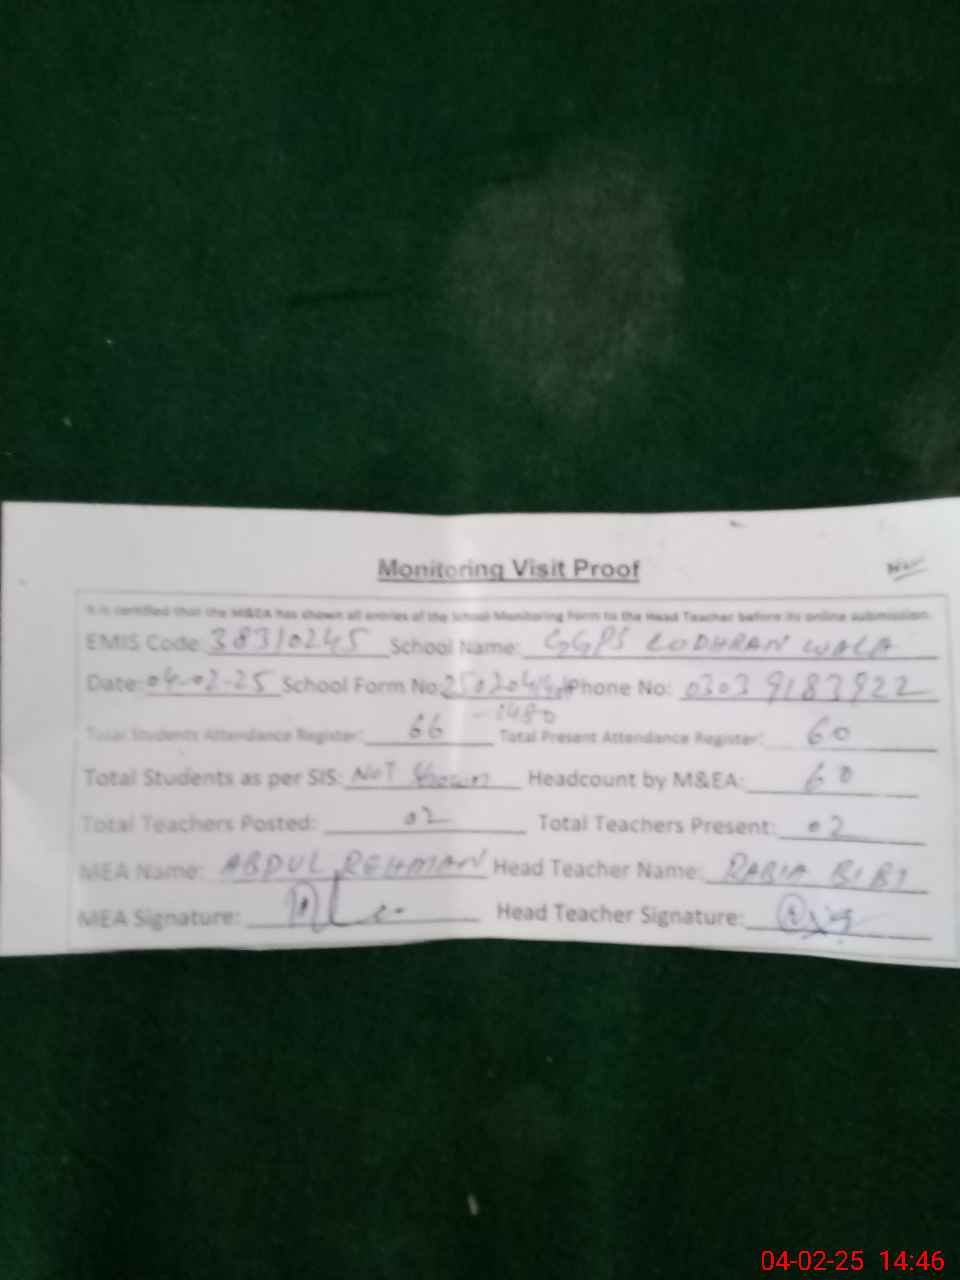 Monitoring Visit Proof
It is certified that the M&EA has shown all entries of the School Monitoring Form to the Head Teacher before its online submission.
EMIS Code: 38310245 School Name: GGPS LODHRAN WALA
Date: 04-02-25 School Form No: Phone No: 03039183922
-1480
Total Students Attendance Register: 66 Total Present Attendance Register: 60
Total Students as per SIS: NOT Shown Headcount by M&EA: 60
Total Teachers Posted: 02 Total Teachers Present: 02
MEA Name: ABDUL REHMAN Head Teacher Name: RABIA BIBI
MEA Signature: Head Teacher Signature:
04-02-25 14:46